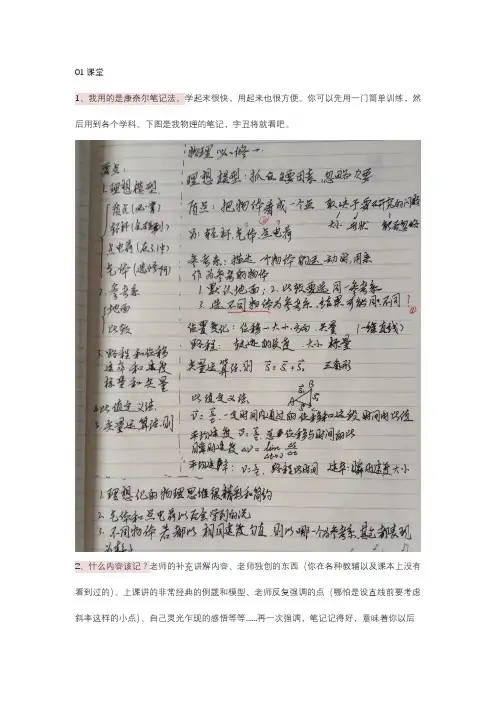 01课堂
1、我用的是康奈尔笔记法，学起来很快，用起来也很方便。你可以先用一门简单训练，然
后用到各个学科。下图是我物理的笔记，字丑将就看吧。
物理必修一
1.理想模型
质点(必一章)
点电荷
气体
2.参考系
地面
比较
3.路程和位移
速率和速度
标量和矢量
比值定义法
矢量运算法则
理想模型：抓主要因素，忽略次要
质点：把物体看成一个点 取决于要研究的问题
大小 形状 能否忽略
轻杆，气体，点电荷
参考系：描述一个物体的运动时，用来
作为参考的物体
1.默认地面；2.比较要选同一参考系
3.选不同物体为参考系，结果可能同/不同
位置变化：位移—大小，方向 矢量 (一维直线)
路程：轨迹的长度 大小 标量
矢量运算法则 三角形
比值定义法
一定时间内通过的位移和这段时间的比值
平均速度 总位移与时间的比
瞬时速度
平均速率：路程比时间 速率：瞬时速度大小
1.理想化的物理思维很精彩和简约
2.气体和点电荷以后会学到的说
3.不同物体若都以相同速度匀直 则以哪一个为参考系，其它都表现
2、什么内容该记？老师的补充讲解内容、老师独创的东西（你在各种教辅以及课本上没有
看到过的）、上课讲的非常经典的例题和模型、老师反复强调的点（哪怕是设直线前要考虑
斜率这样的小点）、自己灵光乍现的感悟等等……再一次强调，笔记记得好，意味着你以后